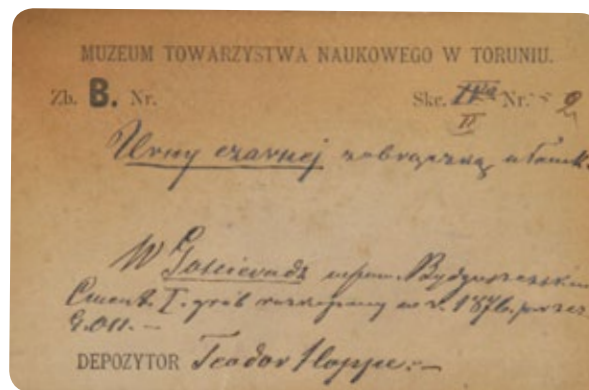 MUZEUM TOWARZYSTWA NAUKOWEGO W TORUNIU.
Zb. B. Nr. Skr. II Nr. 2
Urny czarnej
W pow. Bydgoskim
Cment. I. grób rozkopany w r. 1876. przez
G. Oss. —
DEPOZYTOR Teodor Hoppe. —